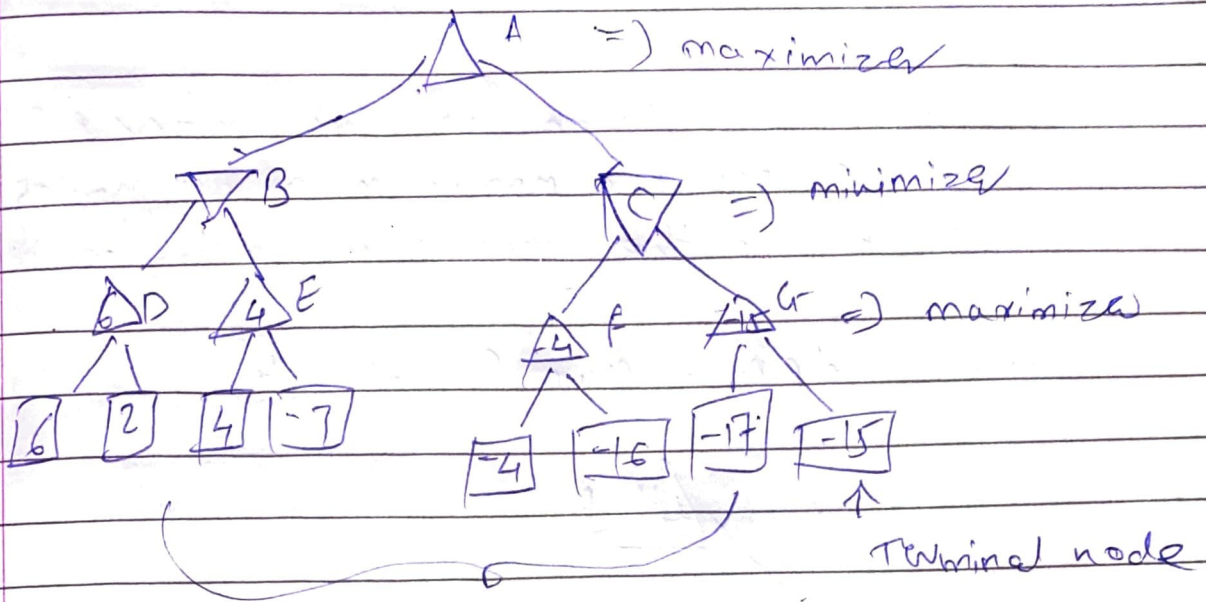 A => maximizer
B C => minimizer
6 D 4 E -4 F -15 G => maximizer
6 2 4 -7 -4 -16 -17 -15
Terminal node